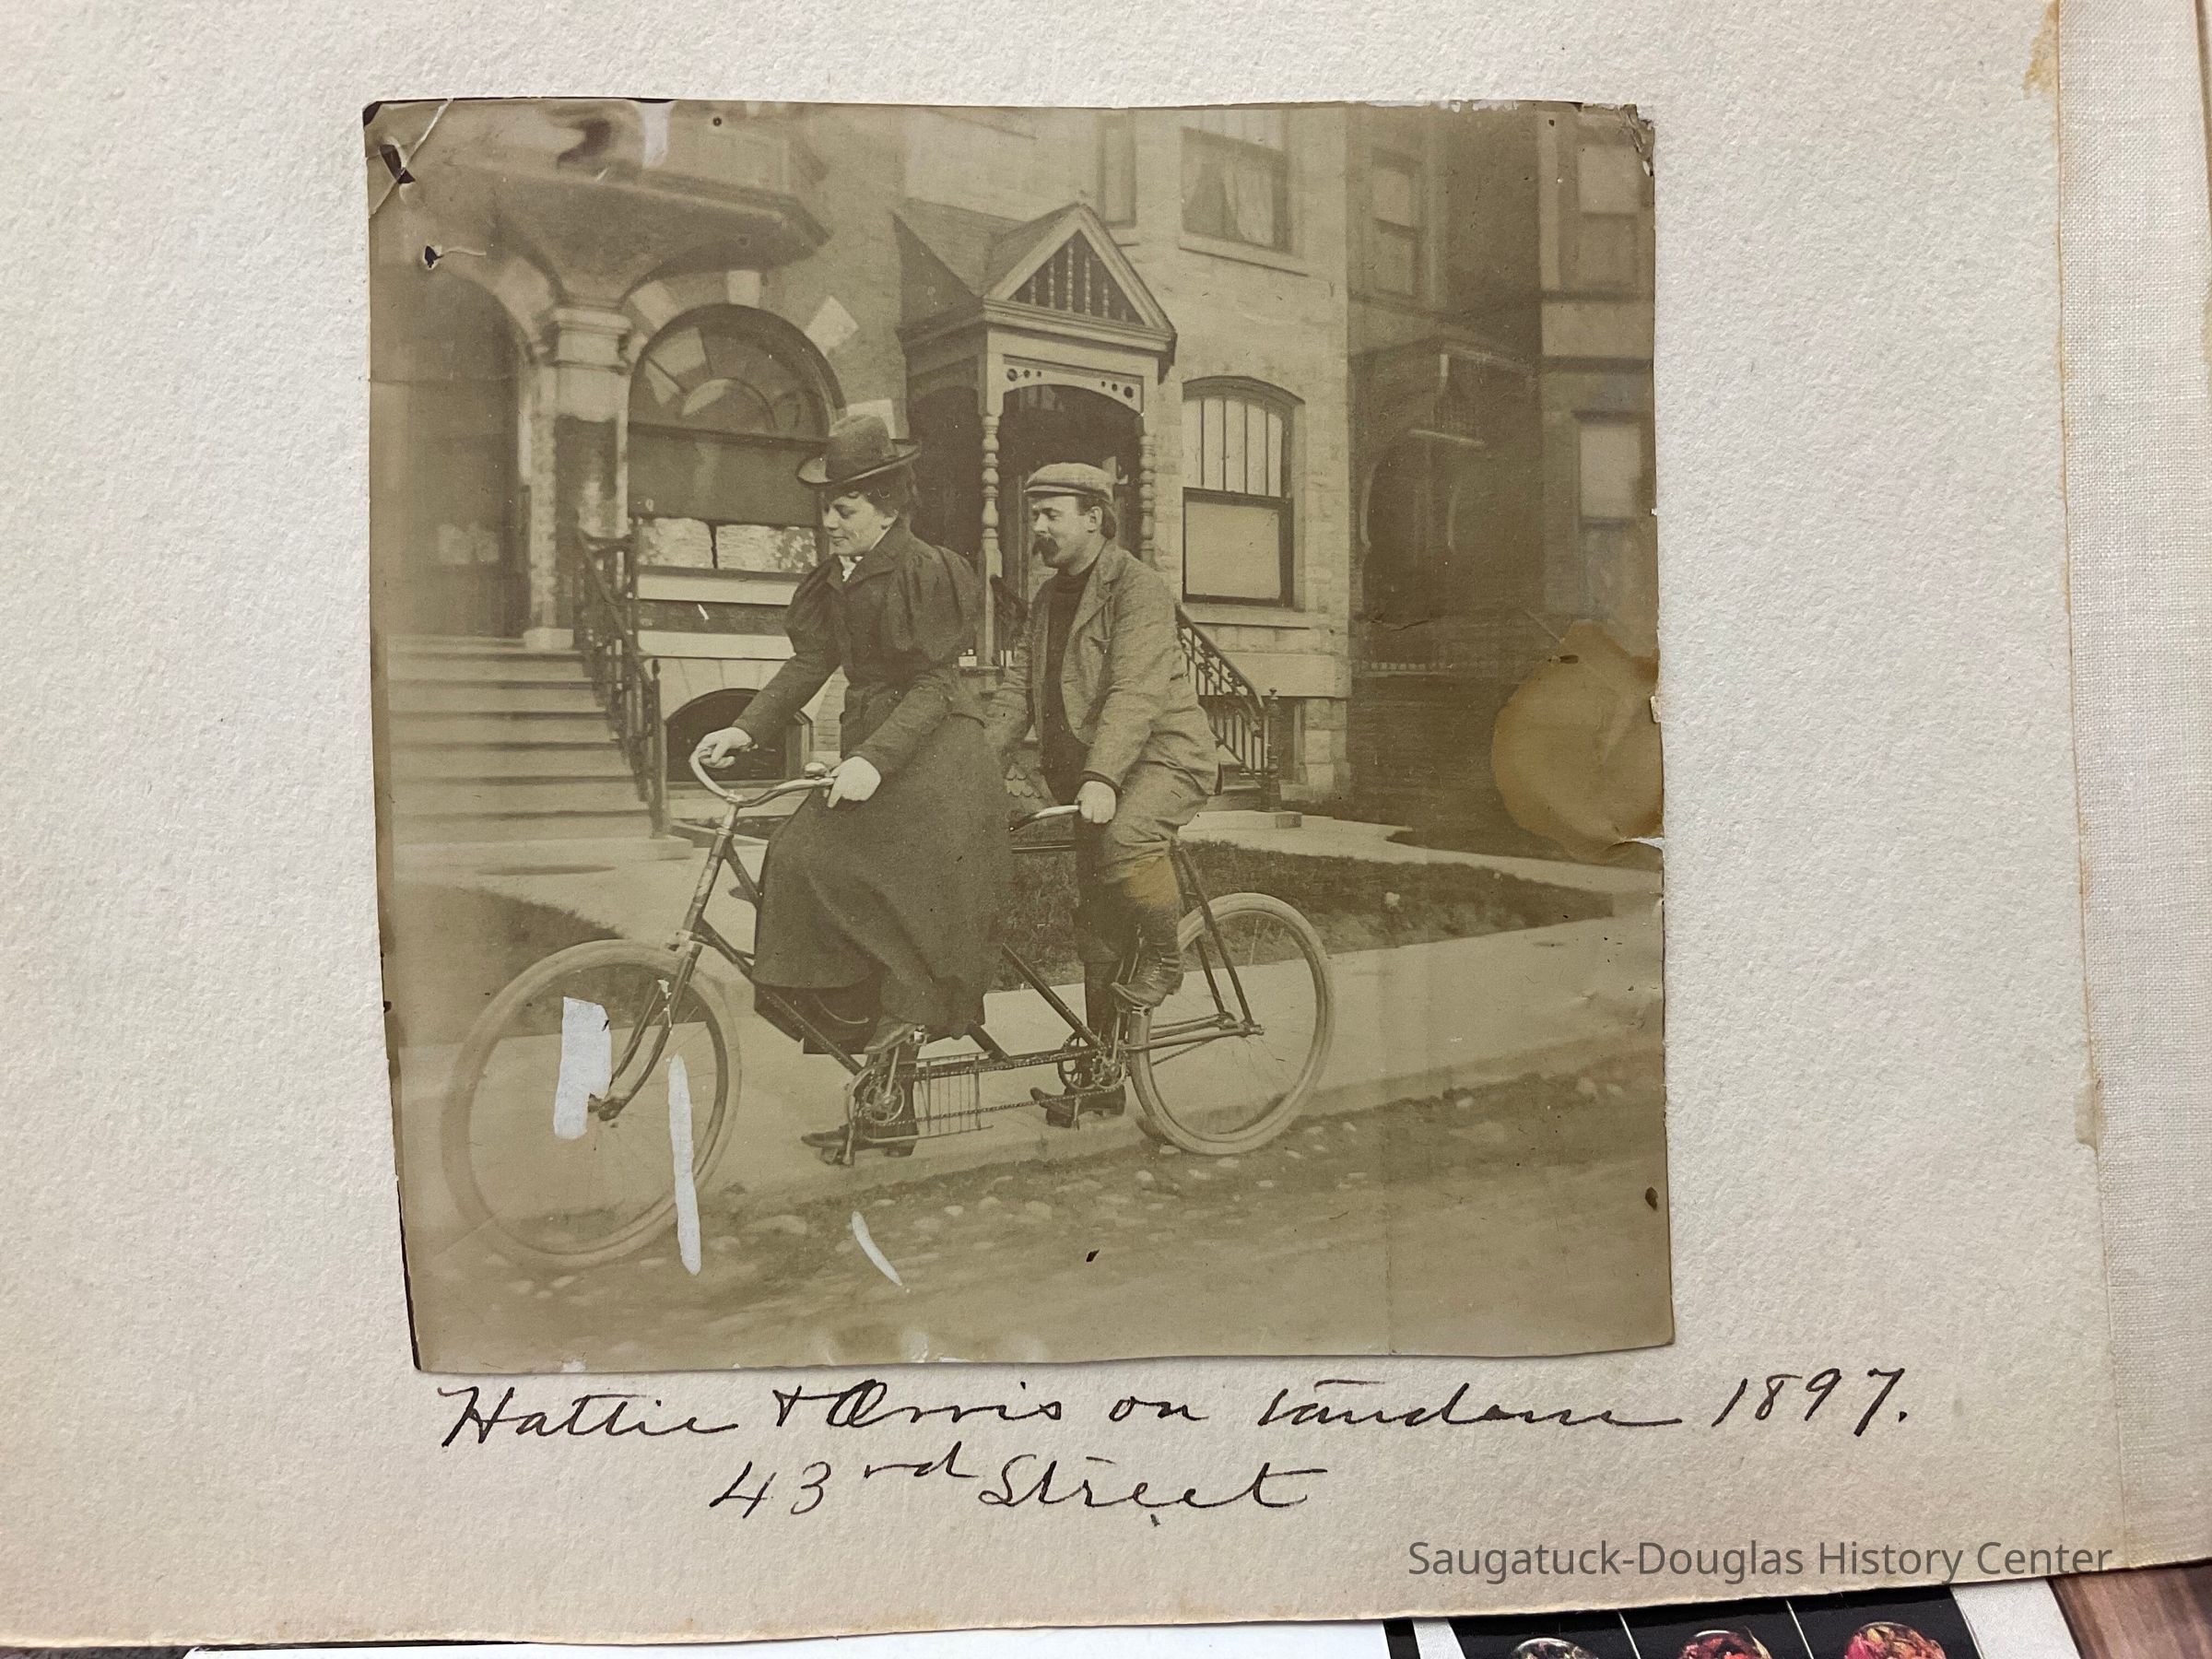 Hattie & Orris on tandem 1897.
43rd Street
Saugatuck-Douglas History Center